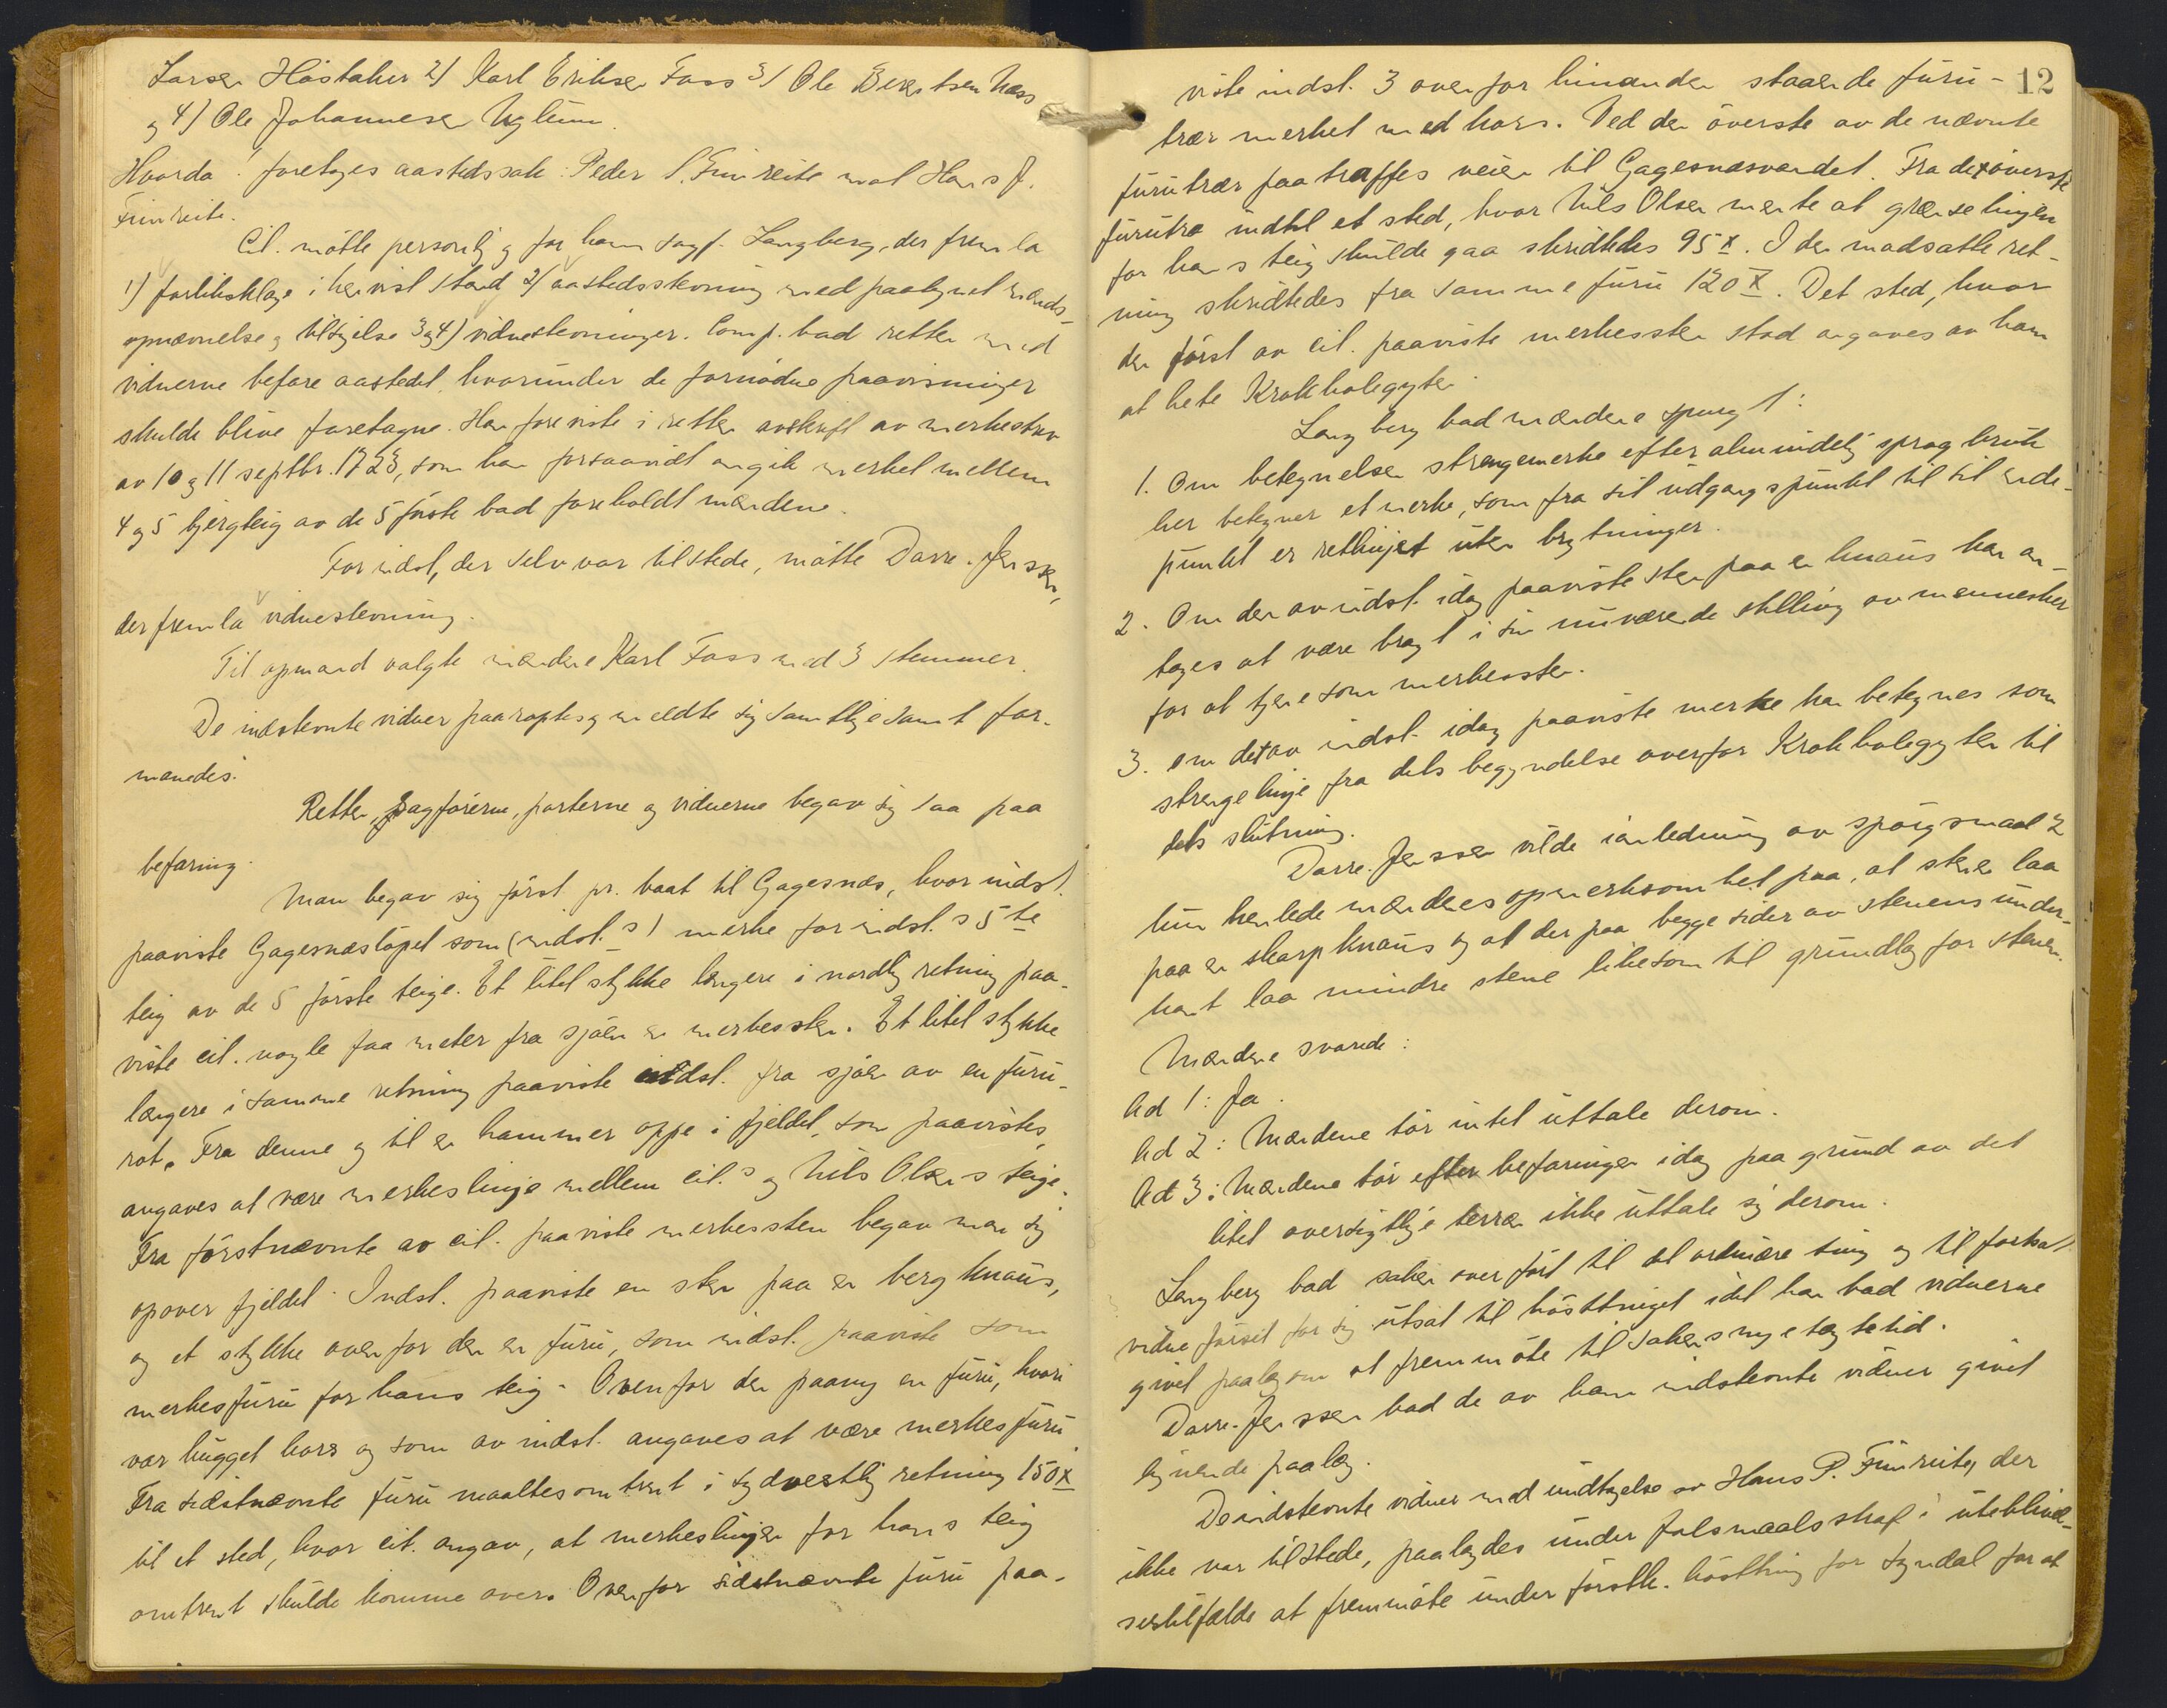 Larsen Høstaker 2/ Karl Eriksen Foss 3/ Ole Evertsen Næss
og 4/ Ole Johannesen Uglum.
Hvorda! foretoges aastedssak: Peder P. Fimreite mot Hans J.
Fimreite.
Cit. møtte personlig og for ham sagf. Langberg, der fremla
1) forliksklage i henvist stand 2/ aastedsstevning med paategnet mænds-
opnævnelse og tilsigelse 3 og 4) vidnestevninger. Comp. bad retten med
vidnerne befare aastedet, hvorunder de fornødne paavisninger
skulde blive foretagne. Han foreviste i retten avskrift av merkesbrev
av 10 og 11 septbr. 1723, som han forsaavidt angik merket mellem
4 og 5 bjergteig av de 5 første bad foreholdt mændene.
For indst., der selv var tilstede, møtte Darre-Jenssen,
der fremla vidnestevning.
Til opmand valgte mændene Karl Foss med 3 stemmer.
De indstevnte vidner paaroptes og meldte sig samtlige samt for-
manedes.
Retten, sagførerne, parterne og vidnerne begav sig saa paa
befaring.
Man begav sig først pr. baat til Gagesnæs, hvor indst.
paaviste Gagesnæsløpet som (indst.s) merke for indst.s 5te
teig av de 5 første teige. Et litet stykke længere i nordlig retning paa-
viste cit. nogle faa meter fra sjøen en merkessten. Et litet stykke
længere i samme retning paaviste indst. fra sjøen av en furu-
rot. Fra denne og til en hammer oppe i fjeldet, som paavistes,
angaves at være merkeslinje mellem cit.s og Nils Olsens teige.
Fra førstnævnte av cit. paaviste merkessten begav man sig
opover fjeldet. Indst. paaviste en sten paa en berg knaus,
og et stykke ovenfor den en furu, som indst. paaviste som
merkesfuru for hans teig. Ovenfor den paany en furu, hvori
var hugget kors og som av indst. angaves at være merkesfuru.
Fra sidstnævnte furu maaltes omtrent i sydvestlig retning 150 x
til et sted, hvor cit. angav, at merkeslinjen for hans teig
omtrent skulde komme over. Ovenfor sidstnævnte furu paa-
12
viste indst. 3 ovenfor hinanden staaende furu-
trær merket med kors. Ved den øverste av de nævnte
furutrær paatraffes veien til Gagesnæsvandet. Fra det øverste
furutræ indtil et sted, hvor Nils Olsen mente at grænselinjen
for hans teig skulde gaa skridtedes 95 x. I den modsatte ret-
ning skridtedes fra samme furu 120 x. Det sted, hvor
den først av cit. paaviste merkessten stod angaves av ham
at hete Krokholegyten.
Langberg bad mændene spurgt:
1. Om betegnelsen strengemerke efter almindelig sprogbruk
her betegner et merke, som fra sit utgangspunkt til sit ende-
punkt er retlinjet uten brytninger.
2. Om den av indst. idag paaviste sten paa en knaus kan an-
tages at være bragt i sin nuværende stilling av mennesker
for at tjene som merkessten.
3. om det av indst. idag paaviste merke kan betegnes som
strengelinje fra dets begyndelse overfor Krokholegyten til
dets slutning.
Darre-Jenssen vilde i anledning av spørgsmaal 2
kun henlede mændenes opmerksomhet paa, at stenen laa
paa en skarp knaus og at der paa begge sider av stenens under-
kant laa mindre stene likesom til grundlag for stenen.
Mændene svarede:
Ad 1: Ja.
Ad 2: Mændene tør intet uttale derom.
Ad 3: Mændene tør efter befaringen idag paa grund av det
litet oversigtlige terræn ikke uttale sig derom.
Langberg bad saken overført til det ordinære ting og til fortsat
vidneførsel for sig utsat til høsttinget idet han bad vidnerne
givet paalæg om at fremmøte til sakens nye tægtetid.
Darre-Jenssen bad de av ham indstevnte vidner givet
lignende paalæg.
De indstevnte vidner med undtagelse av Hans P. Fimreite, der
ikke var tilstede, paalagdes under falsmaalsstraf i uteblivel-
sestilfælde at fremmøte under førstk. høstting for Sogndal for at